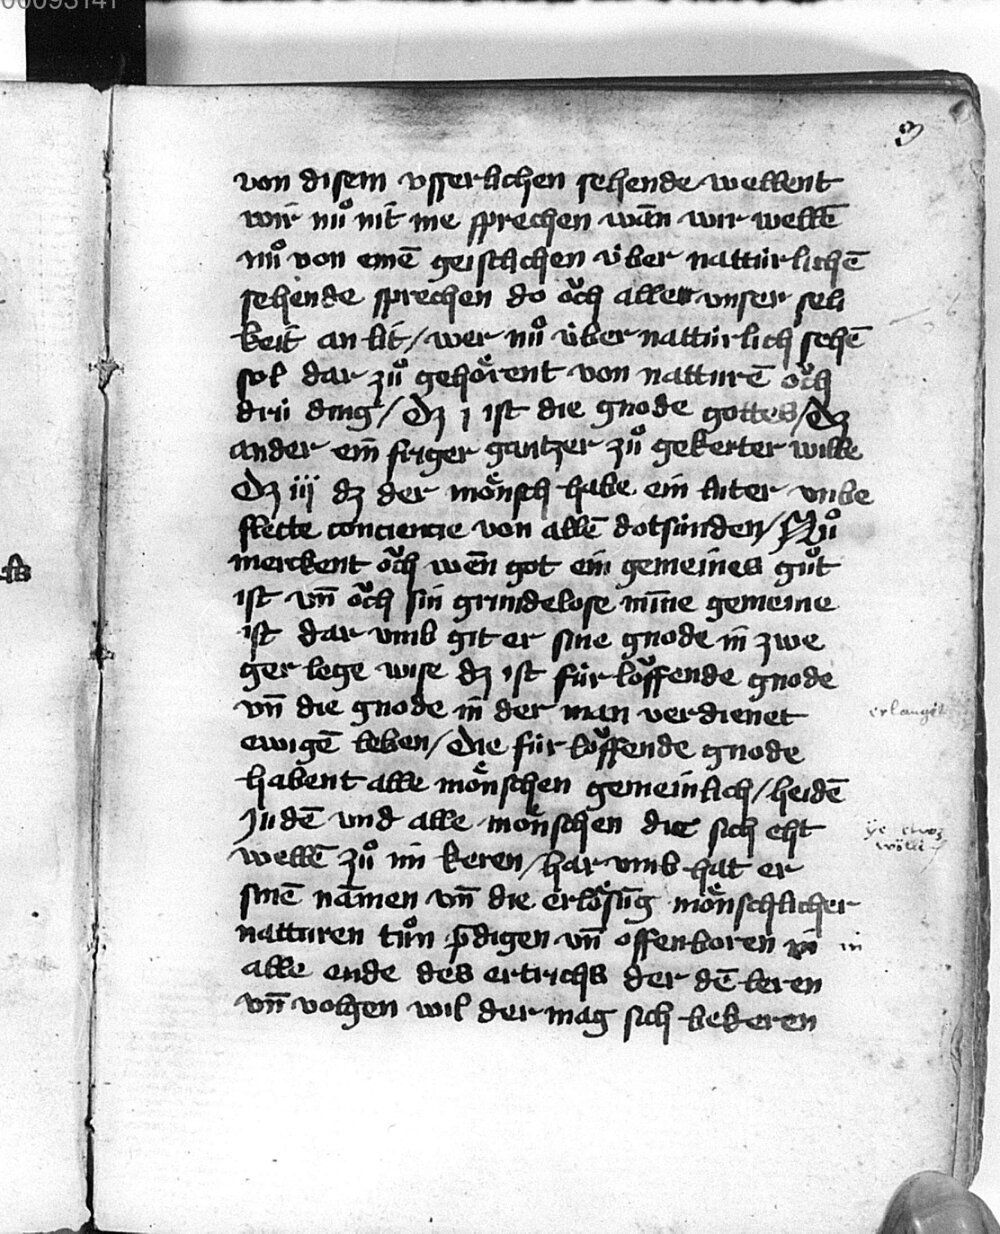 00093141
9
von disem vsserlichen sehende wellent
wir nuͦ nit me sprechen wān wir wellē
nuͦ von einē geistlichen über nattürlichē
sehende sprechen do oͮch aller vnser seli
keit an lit / wer nuͦ über nattürlich sehē
sol dar zuͦ gehoͤrent von natturē oͮch
drü ding / Dz j ist die gnode gottes / Dz
ander ein friger gantzer zuͦ gekerter wille
Dz iij dz der moͤnsch habe ein luter vnbe
flecte conciencie von allē dotsünden / Nuͦ
merckent oͮch wēn got ein gemeines guͦt
ist vn̄ oͮch sin grundelose mīne gemeine
ist dar vmb git er sine gnode in zwe
ger lege wise dz ist für loͮffende gnode
vn̄ die gnode in der man verdienet
ewigē leben / Die für loͮffende gnode
habent alle moͤnschen gemeinlich / heidē
Judē vnd alle moͤnschen die sich eht
wellē zuͦ im keren / har vmb hat er
sinē nāmen vn̄ die erloͤsūg moͤnschlicher
natturen tuͦn p̄digen vn̄ offenboren in
alle ende des ertrichs der dē leren
vn̄ volgen wil der mag sich bekeren